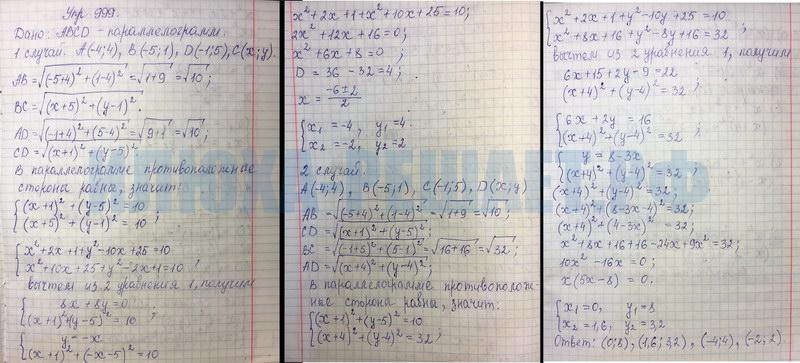 Упр 999.
Дано: ABCD - параллелограмм.
1 случай. A(-4;4), B(-5;1), D(-1;5), C(x;y).
AB = √((-5+4)² + (1-4)²) = √(1+9) = √10;
BC = √((x+5)² + (y-1)²).
AD = √((-1+4)² + (5-4)²) = √(9+1) = √10;
CD = √((x+1)² + (y-5)²)
В параллелограмме противоположные
стороны равны, значит:
{(x+1)² + (y-5)² = 10
{(x+5)² + (y-1)² = 10 ;
{x²+2x+1+y²-10x+25=10
{x²+10x+25+y²-2x+1=10 ;
вычтем из 2 уравнения 1, получим
{8x + 8y = 0
{(x+1)²+(y-5)² = 10 ;
{y = -x
{(x+1)² + (-x-5)² = 10
x²+2x+1+x²+10x+25=10;
2x²+12x+16=0;
x²+6x+8=0 ;
D = 36 - 32 = 4;
x = (-6±2)/2
{x₁ = -4, y₁ = 4
{x₂ = -2, y₂ = 2
2 случай
A(-4;4), B(-5;1), C(-1;5), D(x;y)
AB = √((-5+4)² + (1-4)²) = √(1+9) = √10;
CD = √((x+1)² + (y-5)²;
BC = √((-1+5)² + (5-1)²) = √(16+16) = √32;
AD = √((x+4)² + (y-4)²;
В параллелограмме противополож-
ные стороны равны, значит:
{(x+1)² + (y-5)² = 10
{(x+4)² + (y-4)² = 32 ;
{x²+2x+1+y²-10y+25=10
{x²+8x+16+y²-8y+16=32 ;
вычтем из 2 уравнения 1, получим
6x+15+2y-9=22
(x+4)²+(y-4)²=32 ;
{6x + 2y = 16
{(x+4)²+(y-4)²=32 ;
{y = 8-3x
{(x+4)²+(y-4)²=32 ;
(x+4)²+(y-4)²=32;
(x+4)²+(8-3x-4)²=32;
(x+4)²+(4-3x)²=32;
x²+8x+16+16-24x+9x²=32;
10x²-16x=0;
x(5x-8)=0.
{x₁=0, y₁=8
{x₂=1,6, y₂=3,2
Ответ: (0;8), (1,6;3,2), (-4;4), (-2;2)